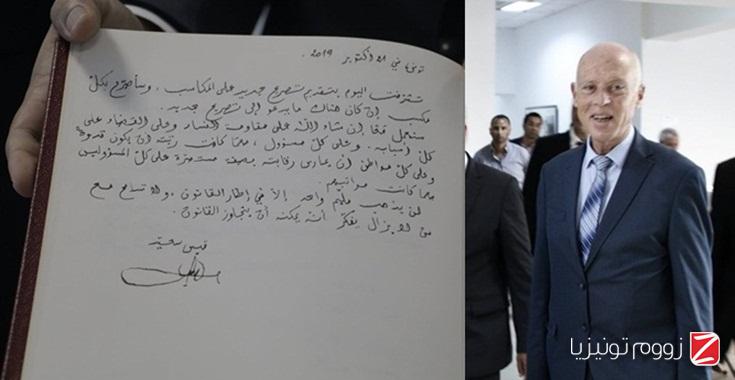 تونس في 21 أكتوبر 2019.
تشرفت اليوم بتقديم تصريح جديد على المكاسب، وسأصرح بكل
مكسب إن كان هناك ما يدعو إلى تصريح جديد.
سنعمل معا إن شاء الله على مقاومة الفساد وعلى القضاء على
كل أسبابه. وعلى كل مسؤول، مهما كانت رتبته أن يكون قدوة
وعلى كل مواطن أن يمارس رقابته بصفة مستمرة على كل المسؤولين
مهما كانت مراتبهم.
لن يذهب مليم واحد إلا في إطار القانون، ولا تسامح مع
من لا يزال يفكر أنه يمكنه أن يتجاوز القانون.
قيس سعيد
زووم تونيزيا Z